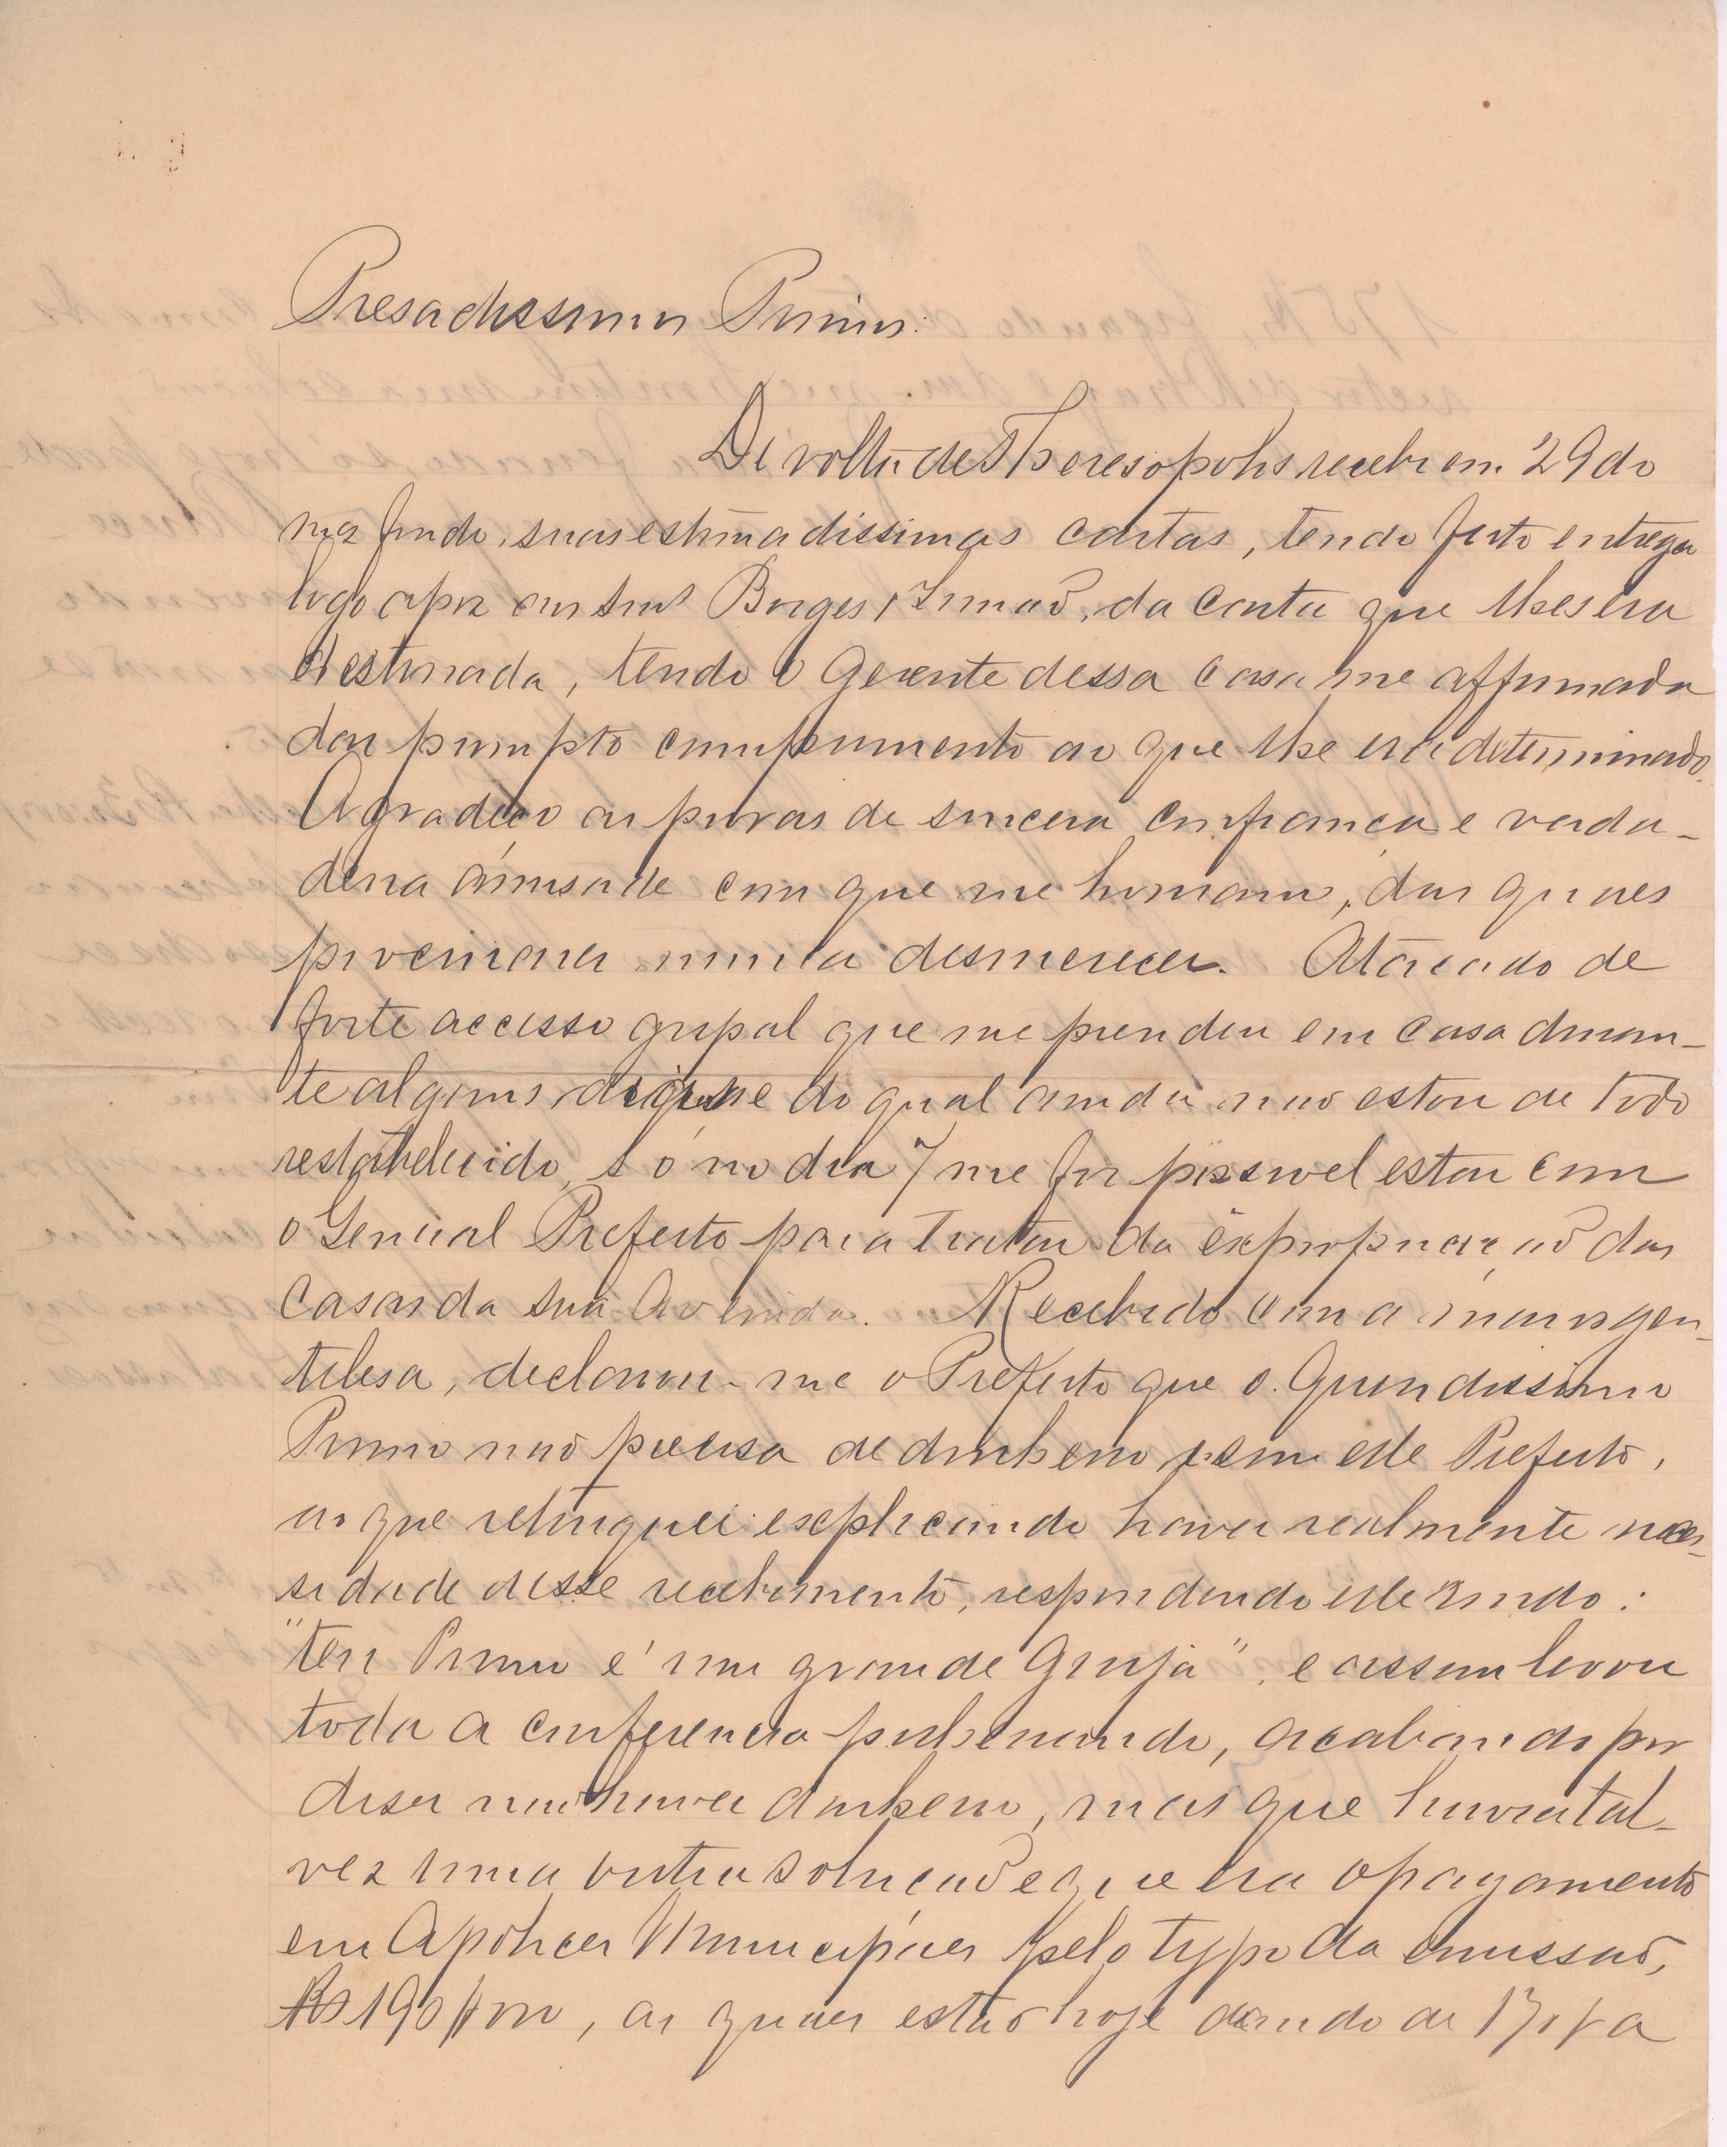 Presadissimo Primo:
De volta de Theresopolis recebi em 29 do
mez findo, suas estimadissimas cartas, tendo feito entrega
logo apoz aos Snrs Borges & Irmaõ, da carta que lhes era
destinada, tendo o Gerente dessa casa me affirmado
dar prompto cumprimento ao que lhe era determinado.
Agradeço as provas de sincera confiança e verda-
deira amisade com que me honram, das quaes
procurarei nunca desmerecer. Atacado de
forte accesso gripal que me prendeu em casa duran-
te alguns dias e do qual ainda naõ estou de todo
restabelecido, só no dia 7 me foi possivel estar com
o General Prefeito para tratar da expropriaçaõ das
casas da sua Avenida. Recebido com a maior gen-
tilesa, declarou-me o Prefeito que o Queridissimo
Primo naõ precisa de dinheiro, e sim elle Prefeito,
ao que retorqui explicando haver realmente neces-
sidade desse recebimento, respondendo elle rindo:
"teu Primo é um grande Granja", e assim levou
toda a conferencia pilheriando, acabando por
diser naõ haver dinheiro, mas que havia tal-
vez uma outra soluçaõ e que era o pagamento
em Apolices Municipáes pelo typo da emissaõ,
Rs 190$000, as quaes estaõ hoje dando de 170$ a